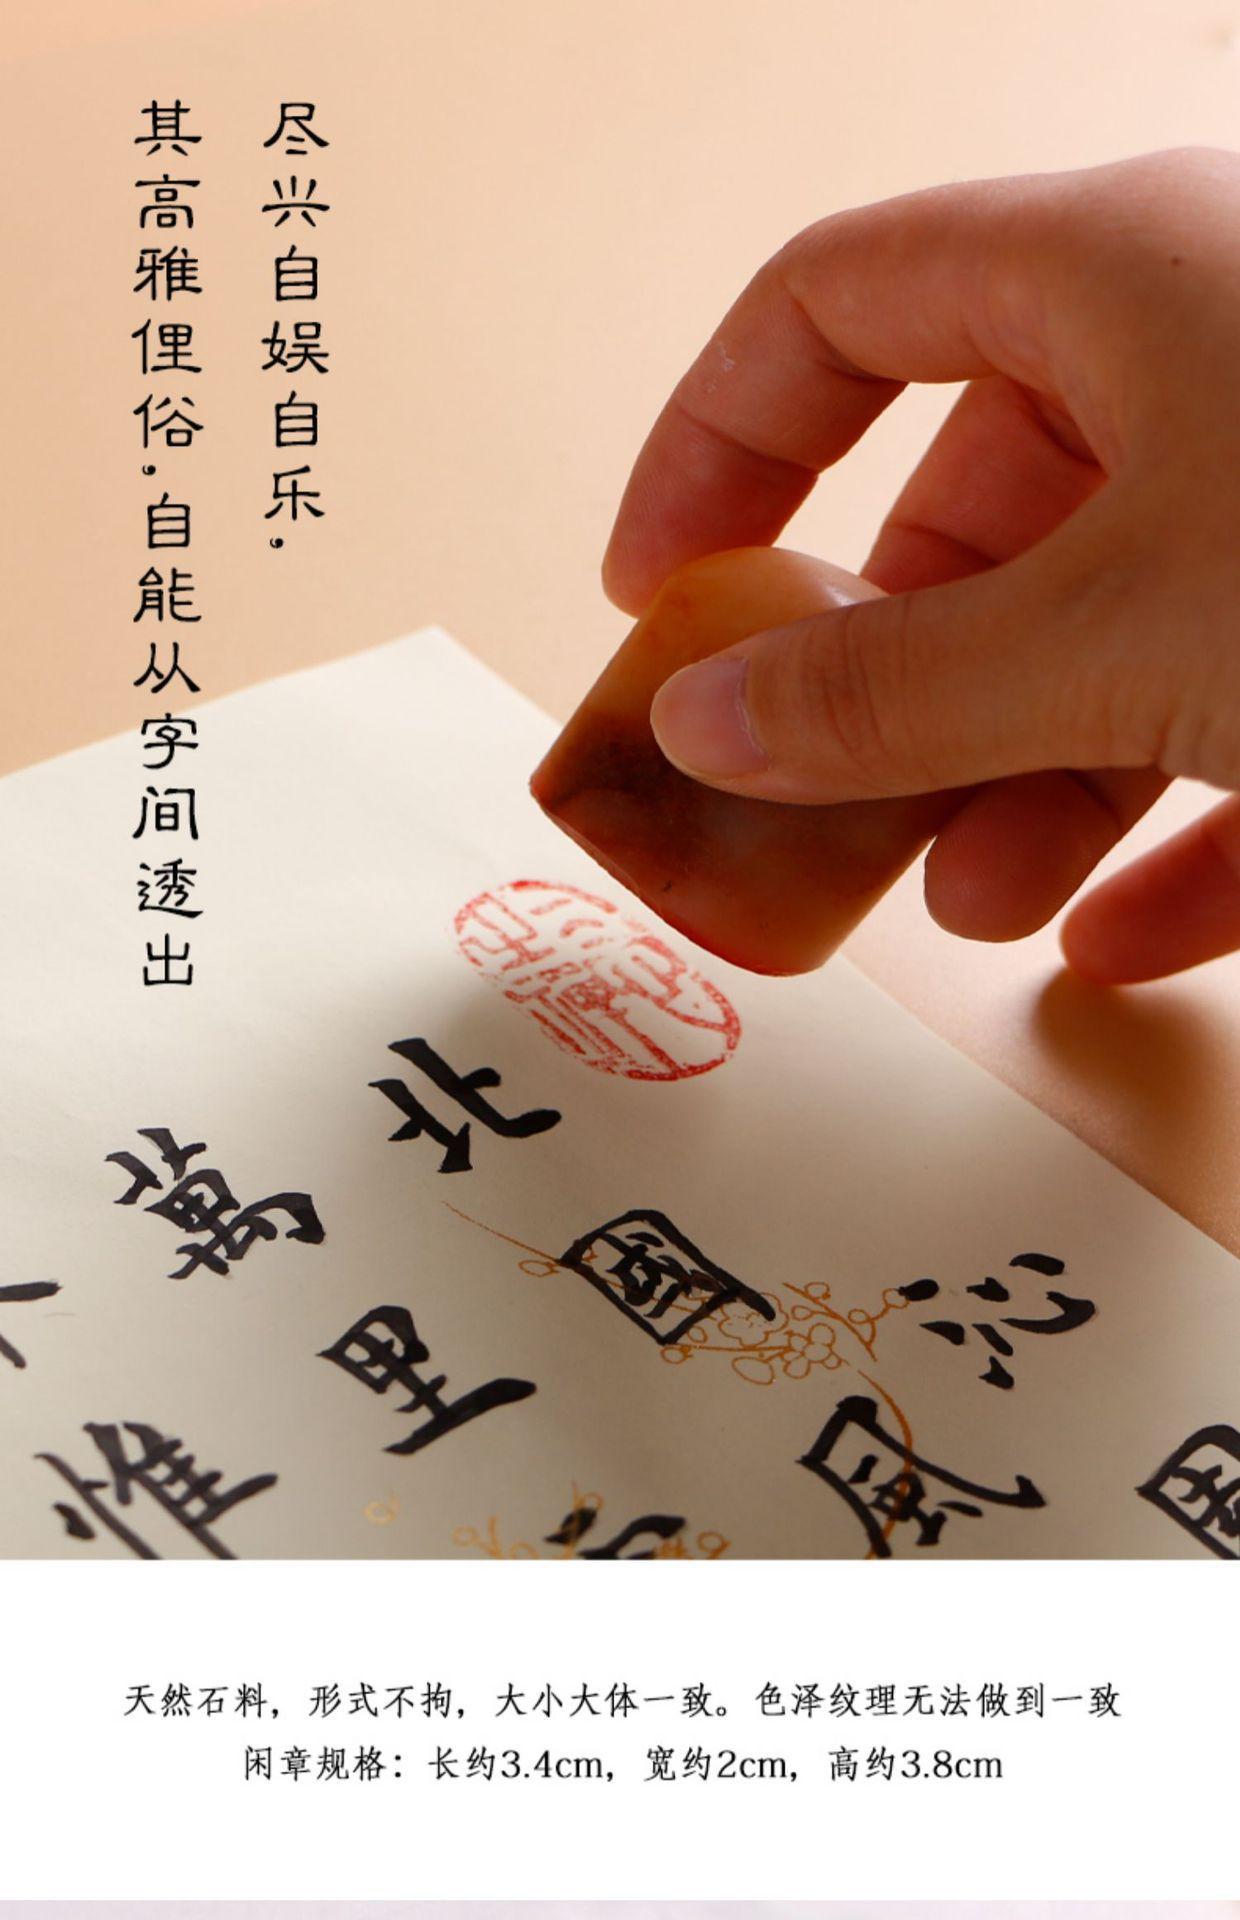 尽兴自娱自乐，
其高雅俚俗，自能从字间透出
北
國
沁
萬
里
風
惟
天然石料，形式不拘，大小大体一致。色泽纹理无法做到一致
闲章规格：长约3.4cm，宽约2cm，高约3.8cm